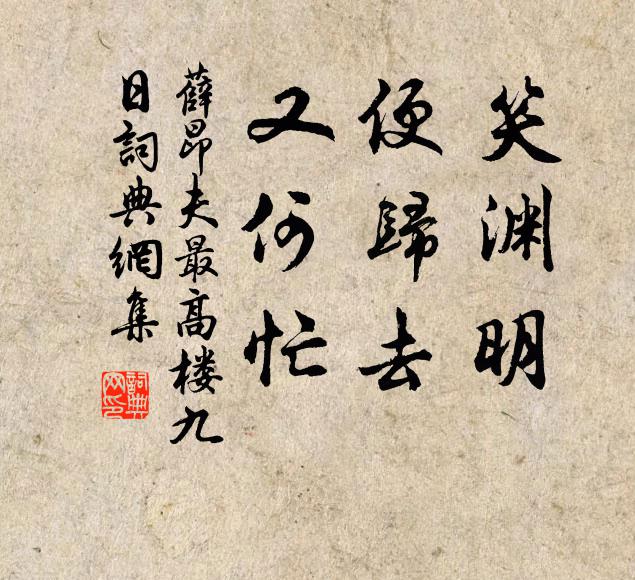 笑渊明
便歸去
又何忙
薛昂夫最高楼九
日詞典網集
詞典网印